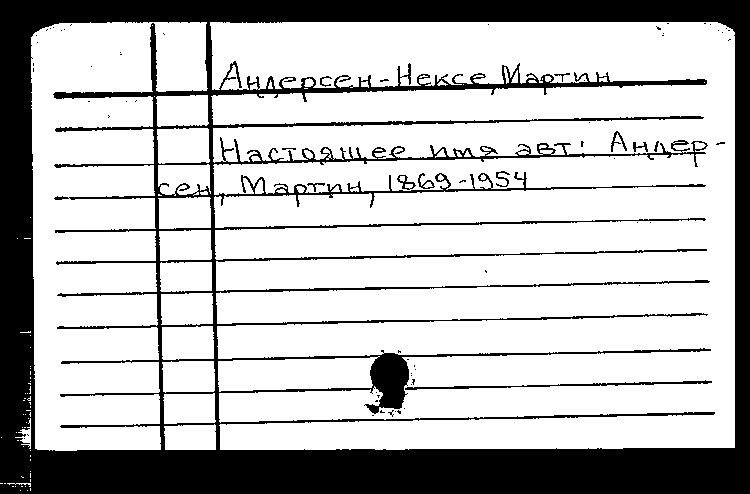 Андерсен-Нексе, Мартин.
Настоящее имя авт: Андер-
сен, Мартин, 1869-1954